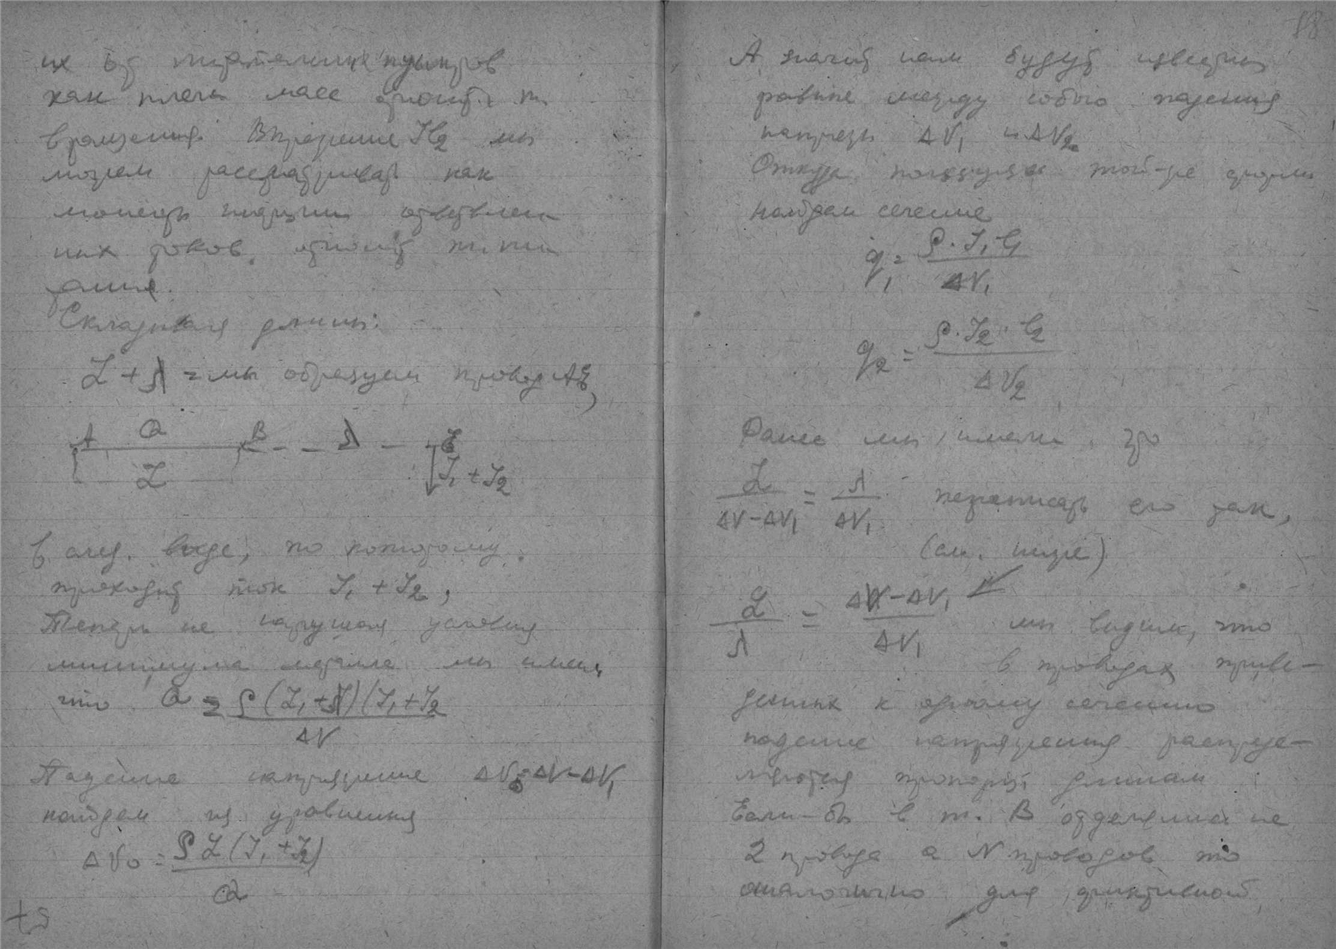 их от питательных пунктов
как плечи масс относит. т.
вращения. Выражение Il2 мы
можем рассматривать как
моменты инерции ответвлен
ных токов, относит. т. пи
тания.
Складывая длины:
L + Λ = мы образуем провод AE,
A Q B Λ E
L I₁ + I₂
в след. виде, по которому
проходит ток I₁ + I₂,
Теперь не нарушая условия
минимума металла мы имеем
что Q = ρ(L₁+Λ)(I₁+I₂) / ΔV
Падение напряжения ΔV₀=ΔV-ΔV₁
найдем из уравнения
ΔV₀ = ρL(I₁+I₂) / Q
А значит нам будут известны
равные между собою падения
напряж ΔV₁ и ΔV₂.
Откуда, пользуясь той-же формул
найдем сечение
q₁ = ρ·I₁l₁ / ΔV₁
q₂ = ρ·I₂·l₂ / ΔV₂
Ранее мы имели
L / ΔV-ΔV₁ = Λ / ΔV₁ переписать его так,
(см. ниже)
L / Λ = ΔV-ΔV₁ / ΔV₁ мы видим, что
в проводах приве-
денных к одному сечению
падение напряжения распреде-
ляются пропорц. длинам
Если-бы в т. В отделялись не
2 провода а N проводов то
аналогично для фиктивной